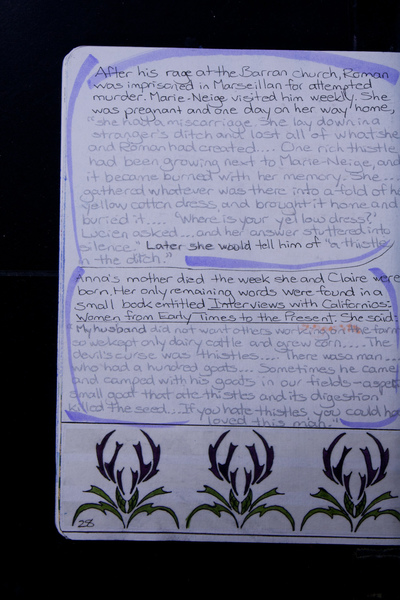 After his rage at the Barran church, Roman
was imprisoned in Marseillan for attempted
murder. Marie-Neige visited him weekly. She
was pregnant and one day on her way home,
"she had a miscarriage. She lay down in a
stranger's ditch and lost all of what she
and Roman had created.... One rich thistle
had been growing next to Marie-Neige, and
it became burned with her memory. She....
gathered whatever was there into a fold of he
yellow cotton dress and brought it home and
buried it.... "Where is your yellow dress?'
Lucien asked...and her answer stuttered into
silence." Later she would tell him of "a thistle
in the ditch."
Anna's mother died the week she and Claire were
born. Her only remaining words were found in a
small book entitled Interviews with Californios:
Women from Early Times to the Present. She said:
"My husband did not want others working the farm
so we kept only dairy cattle and grew corn.... The
devil's curse was thistles.... There was a man...
who had a hundred goats.... Sometimes he came
and camped with his goats in our fields-a spec
small goat that ate thistles and its digestion
killed the seed...If you hate thistles you could ha
loved this man."
28